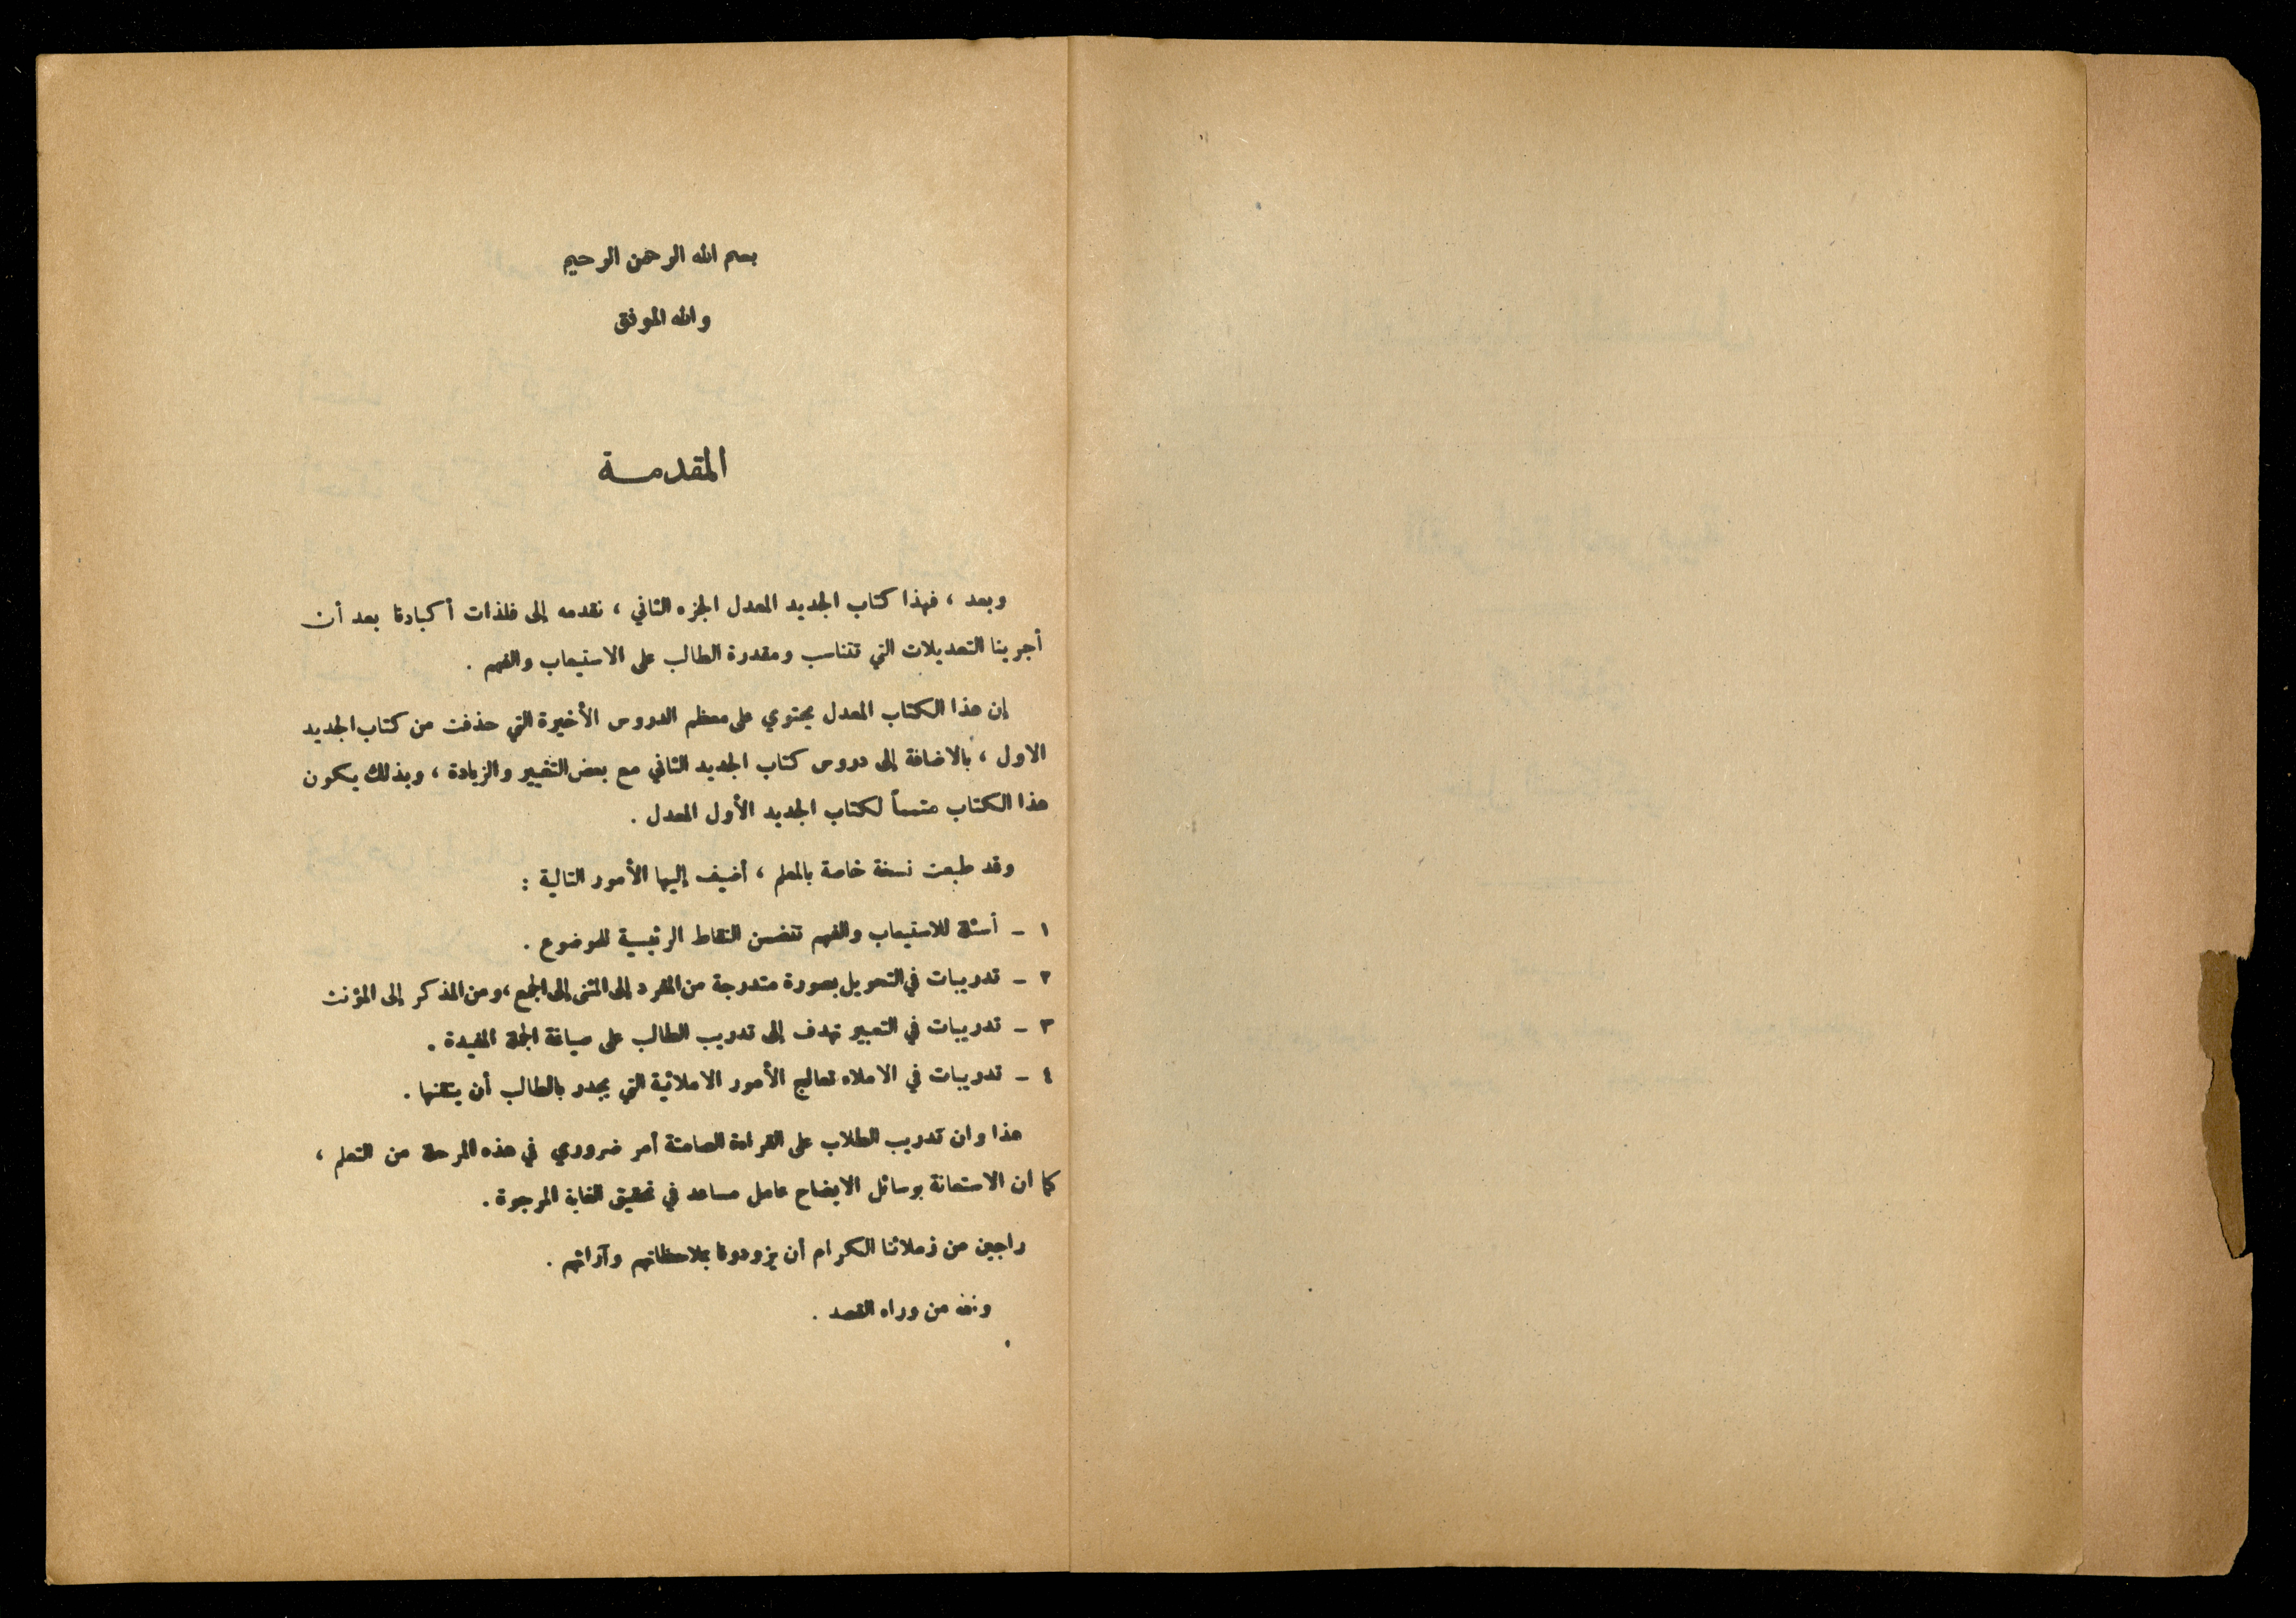 بسم الله الرحمن الرحيم
والله الموفق
المقدمـــة
وبعد ، فهذا كتاب الجديد المعدل الجزء الثاني ، نقدمه إلى فلذات أكبادنا بعد أن
أجرينا التعديلات التي تتناسب ومقدرة الطالب على الاستيعاب والفهم .
إن هذا الكتاب المعدل يحتوي على معظم الدروس الأخيرة التي حذفت من كتاب الجديد
الاول ، بالاضافة إلى دروس كتاب الجديد الثاني مع بعض التغيير والزيادة ، وبذلك يكون
هذا الكتاب متمماً لكتاب الجديد الأول المعدل .
وقد طبعت نسخة خاصة بالمعلم ، أضيف إليها الأمور التالية :
١ ـ أسئلة للاستيعاب والفهم تتضمن النقاط الرئيسية للموضوع .
٢ ـ تدريبات في التحويل بصورة متدرجة من المفرد إلى المثنى إلى الجمع ، ومن المذكر إلى المؤنث
٣ ـ تدريبات في التعبير تهدف إلى تدريب الطالب على صياغة الجملة المفيدة .
٤ ـ تدريبات في الاملاء تعالج الأمور الاملائية التي يجدر بالطالب أن يتقنها .
هذا وان تدريب الطلاب على القراءة الصامتة أمر ضروري في هذه المرحلة من التعلم ،
كما ان الاستعانة بوسائل الايضاح عامل مساعد في تحقيق الغاية المرجوة .
راجين من زملائنا الكرام أن يزودونا بملاحظاتهم وآرائهم .
والله من وراء القصد .